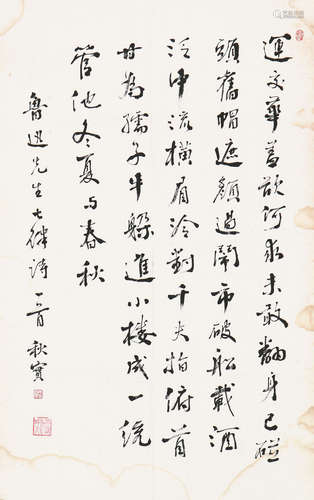 運交華蓋欲何求未敢翻身已碰
頭舊帽遮顏過鬧市破船載酒
泛中流橫眉冷對千夫指俯首
甘為孺子牛躲進小樓成一統
管他冬夏与春秋
魯迅先生七律詩一首 秋實